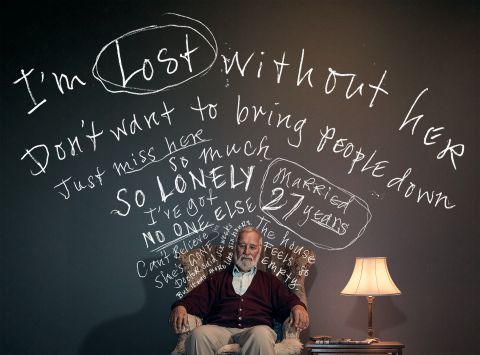 I'm Lost without her
Don't want to bring people down
Just miss here
so much
SO LONELY
Married
27 years
I've got
NO ONE ELSE
Can't Believe
she's
The house
Feels so
empty